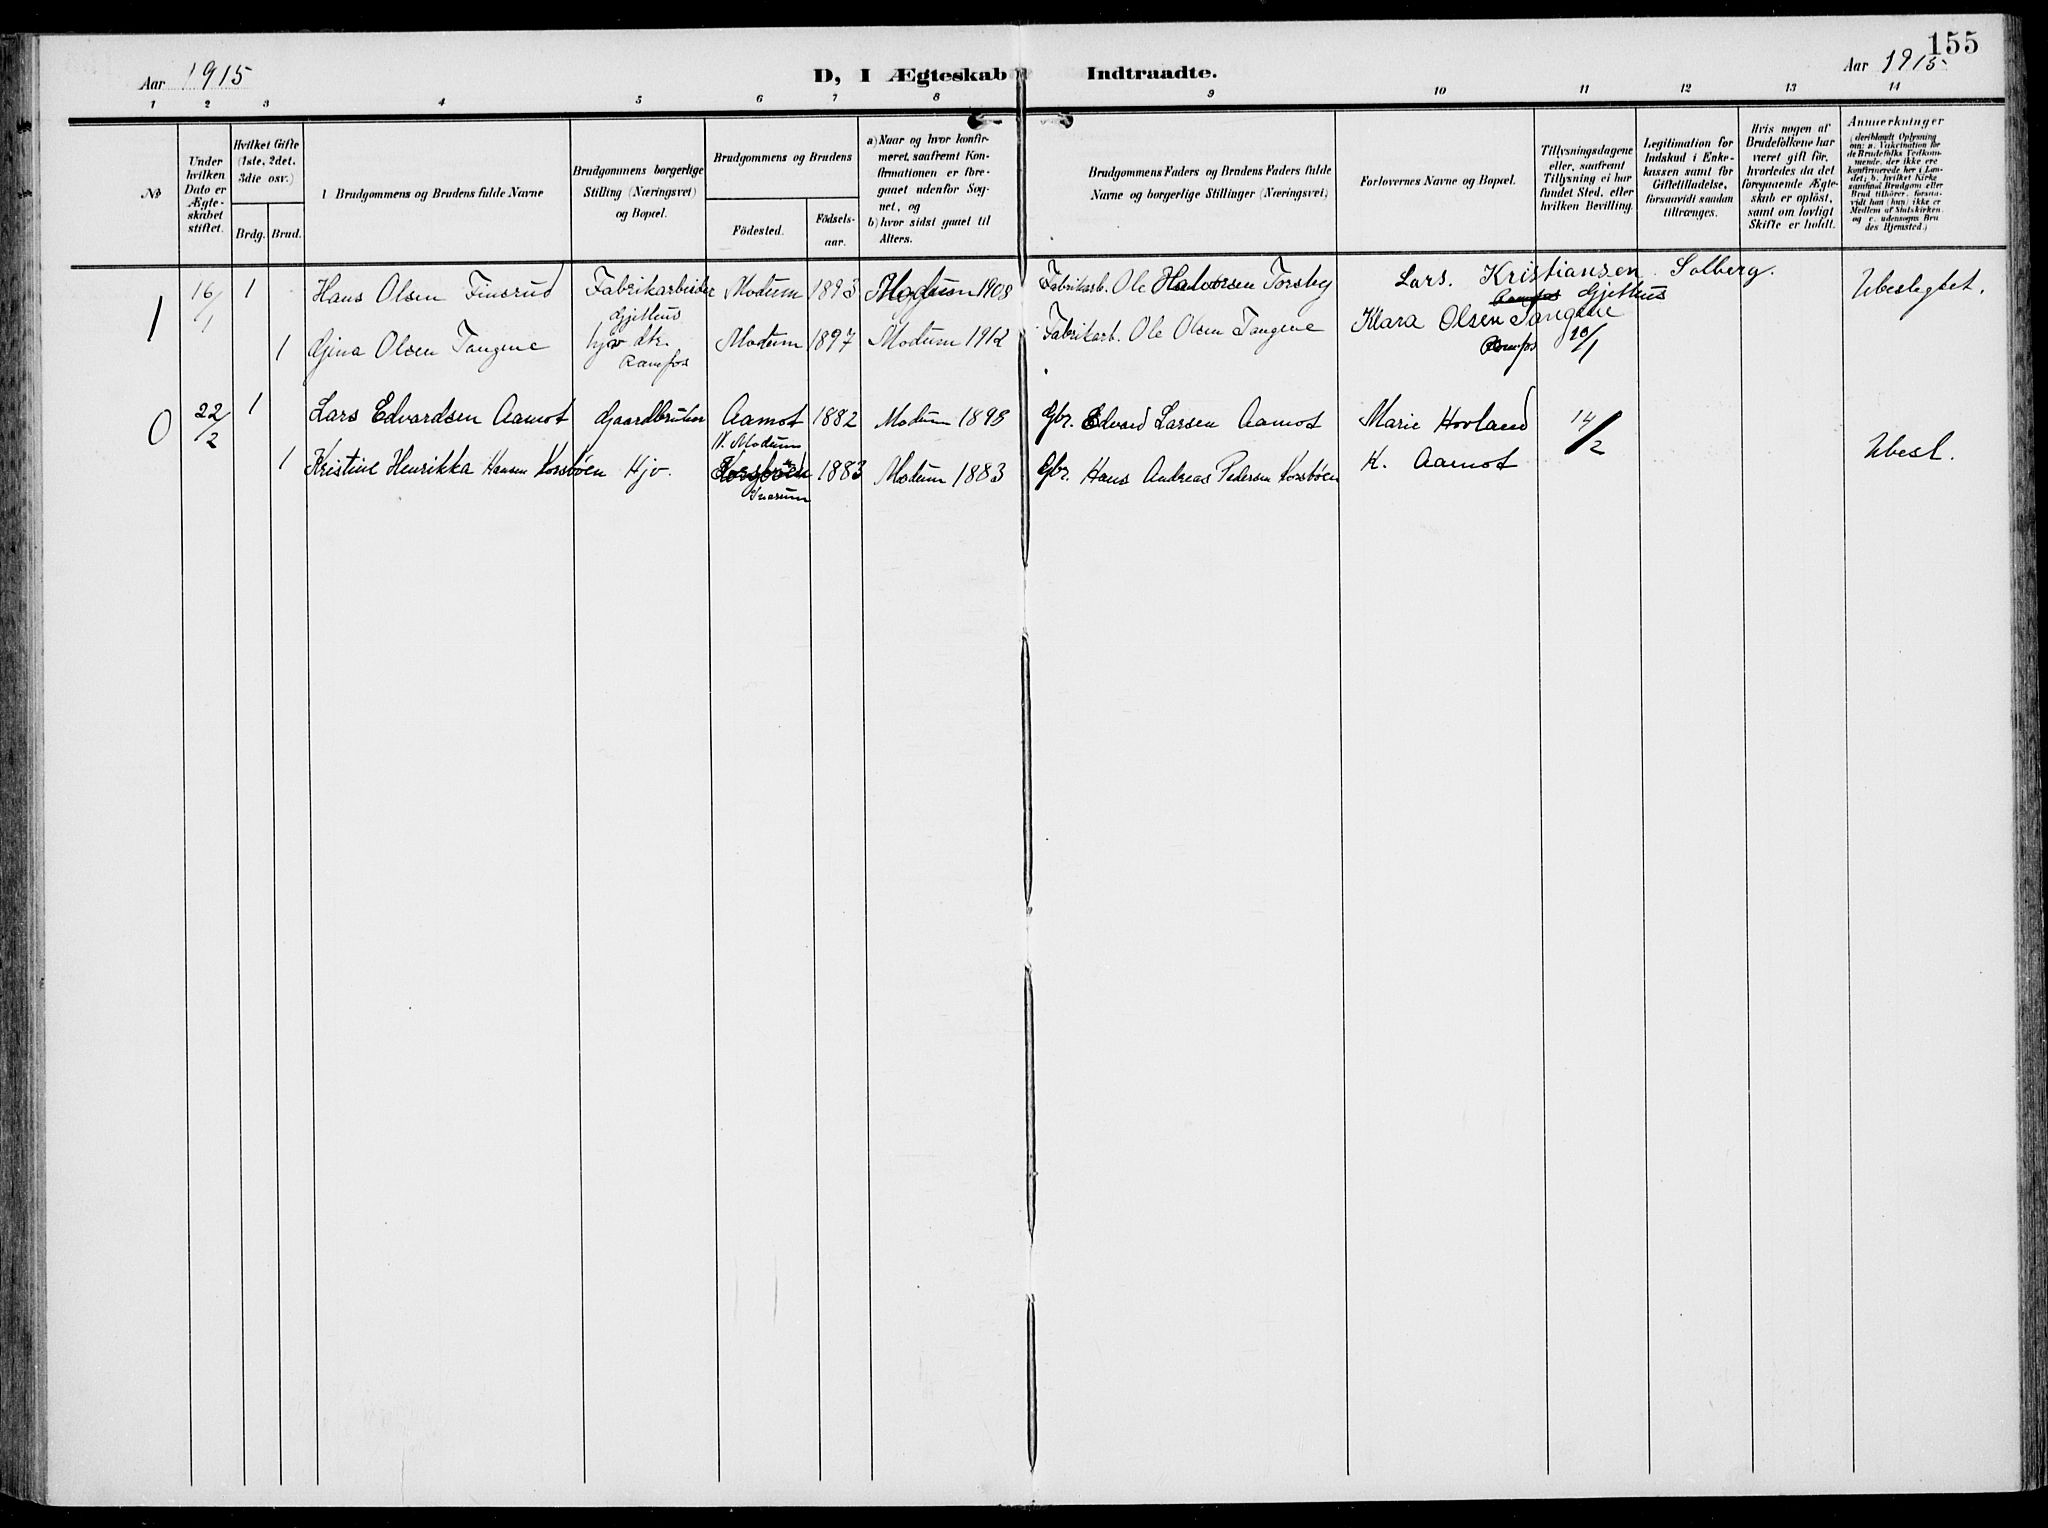 155
Aar 1915
D, I Ægteskab Indtraadte.
Aar 1915
1 2 3 4 5 6 7 8 9 10 11 12 13 14
No
Under hvilken Dato er Ægteskabet stiftet.
Hvilket Gifte (1ste, 2det. 3die osv.)
Brdg. Brud.
Brudgommens og Brudens fulde Navne
Brudgommens borgerlige Stilling (Næringsvei) og Bopæl.
Brudgommens og Brudens
Födested.
Födselsaar.
a) Naar og hvor konfirmeret, saafremt Konfirmationen er foregaaet udenfor Sognet, og
b) hvor sidst gaaet til Alters.
Brudgommens Faders og Brudens Faders fulde Navne og borgerlige Stillinger (Næringsvei)
Forlovernes Navne og Bopæl.
Tillysningsdagene eller, saafremt Tillysning ei har fundet Sted, efter hvilken Bevilling.
Legitimation for Indskud i Enkekassen samt for Giftetilladelse, forsaavidt saadan tiltrænges.
Hvis nogen af Brudefolkene har været gift för, hvorledes da det foregaaende Ægteskab er oplöst, samt om lovligt Skifte er holdt.
Anmerkninger
(deriblandt Oplysning om: a. Vakcination for de Brudefolks Vedkommende, der ikke ere konfirmerede her i Landet; b. hvilket Kirkesamfund Brudgom eller Brud tilhörer, forsaavidt han (hun) ikke er Medlem af Statskirken, og c. udensogns Brudes Hjemsted.)
1 16/1 1 Hans Olsen Finsrud Fabrikarbeider Modum 1893 Modum 1908 Fabrikarb. Ole Halvorsen Torsby Lars. Kristiansen Solberg. Ubeslegtet.
Gjethus Gjethus
1 Gjina Olsen Tangene hjv Modum 1897 Modum 1912 Fabrikarb. Ole Olsen Tangene Klara Olsen Tangene
Ramfos Ramfos 10/1
0 22/2 1 Lars Edvardsen Aamot Gaardbruker Aamot 1882 Modum 1898 Gbr. Edvard Larsen Aamot Marie Hovland 14/2
N. Modum
1 Kristine Henrikka Hansen Korsbøen Hjv. Korsbøen 1883 Modum 1883 Gbr. Hans Andreas Pedersen Korsbøen K. Aamot Ubesl.
Snarum